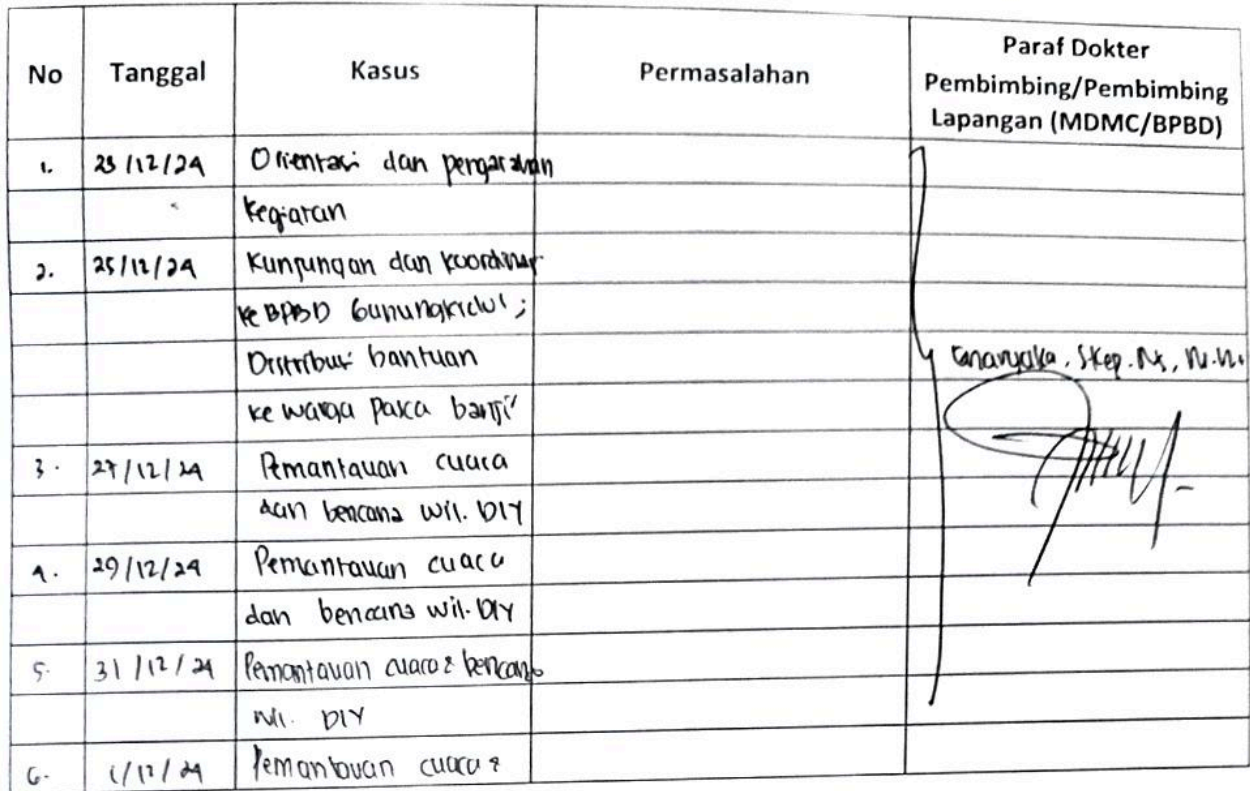 No Tanggal Kasus Permasalahan Paraf Dokter
Pembimbing/Pembimbing
Lapangan (MDMC/BPBD)
1. 23/12/24 Orientasi dan pengarahan
kegiatan
2. 25/12/24 Kunjungan dan koordinasi
ke BPBD Gunungkidul ;
Distribusi bantuan
ke warga pasca banjir
3. 27/12/24 Pemantauan cuaca
dan bencana wil. DIY
4. 29/12/24 Pemantauan cuaca
dan bencana wil. DIY
5. 31/12/24 Pemantauan cuaca & bencana
wil. DIY
6. 1/12/24 Pemantauan cuaca &
S.Kep. Ns,